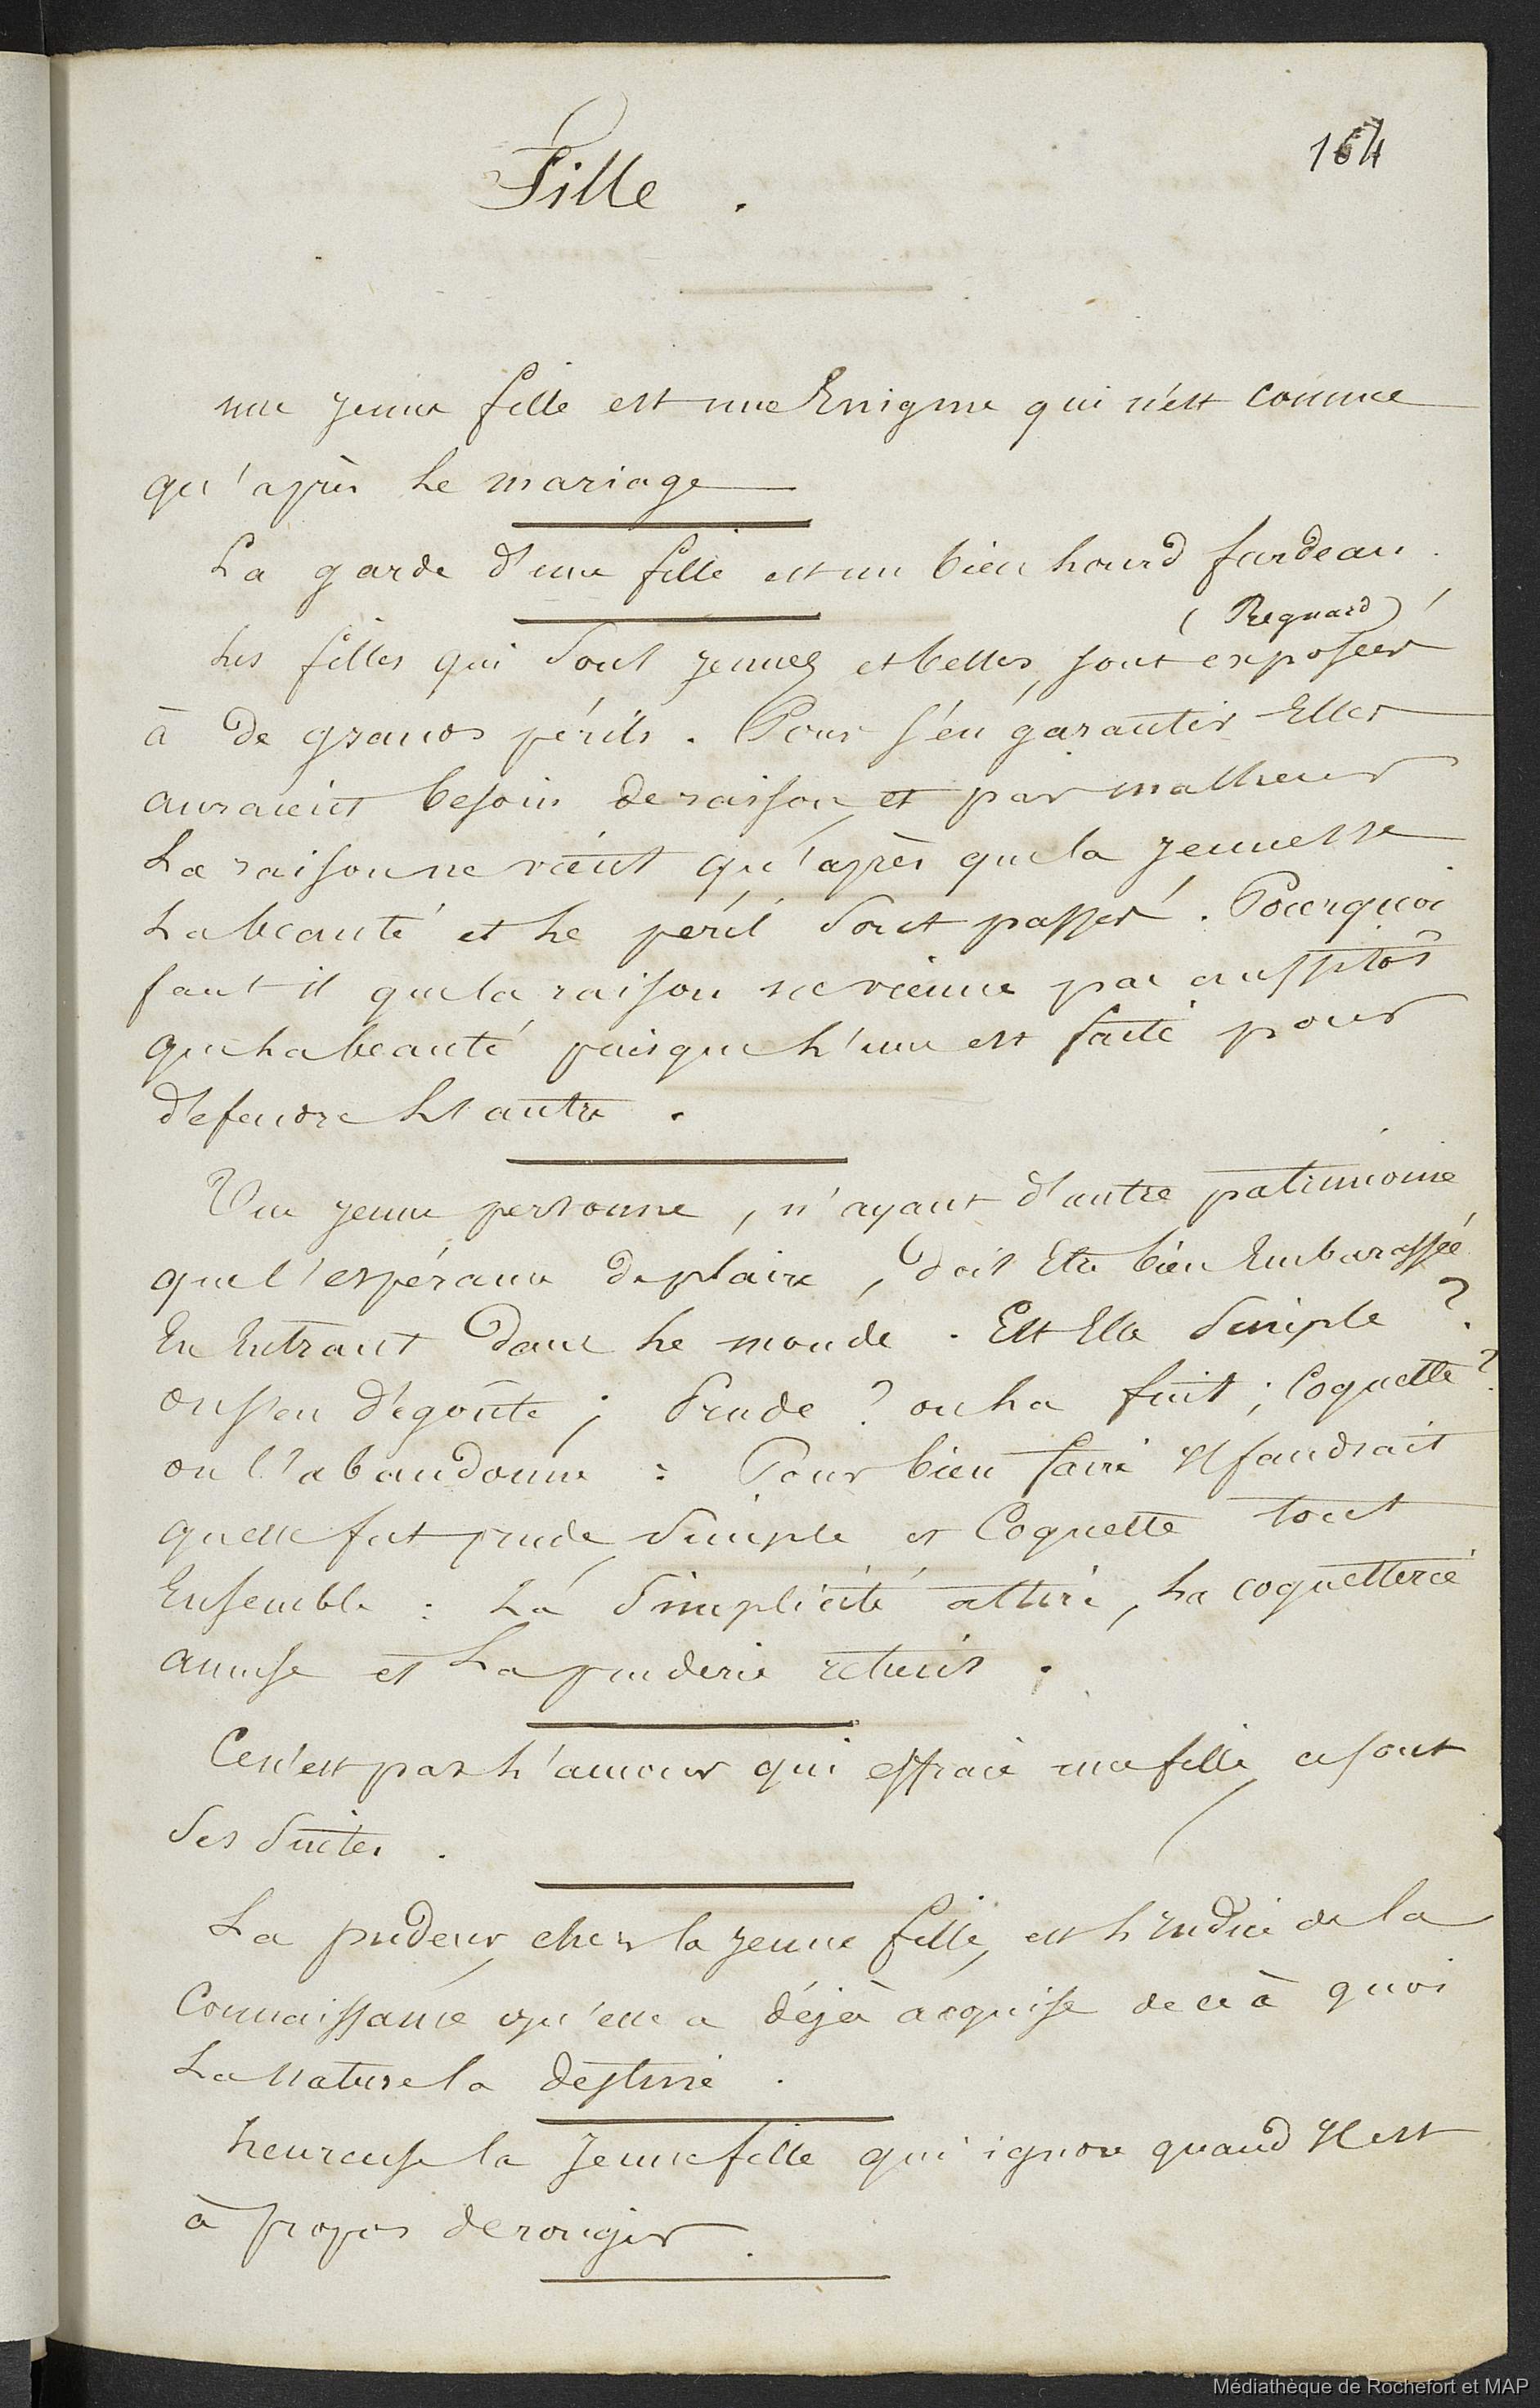 164
Fille .
une jeune fille est une Enigme qui n'est connue
qu'après le mariage
La garde d'une fille est un bien lourd fardeau .
( Regnard )
Les filles qui sont jeunes et belles, sont exposées
à de grands périls . Pour s'en garantir Elles
auraient besoin de raison, et par malheur
La raison ne vient qu'après que la jeunesse
La beauté et le péril sont passés . Pourquoi
faut-il que la raison ne vienne pas aussitôt
que la beauté puisque l'une est faite pour
défendre l'autre .
Une jeune personne , n'ayant d'autre patrimoine
que l'espérance de plaire , doit Etre bien Embarassée
En Entrant dans le monde . Est Elle Simple ?
on s'en dégoûte ; Prude ? on la fuit ; Coquette ?
on l'abandonne : Pour bien faire Il faudrait
quelle fut prude, Simple et Coquette tout
Ensemble : La Simplicité attire , la coquetterie
amuse et La pruderie retient .
Ce n'est pas l'amour qui effraie une fille, ce sont
ses suites .
La pudeur, chez la jeune fille, est l'Indice de la
Connaissance qu'elle a déjà acquise de ce à quoi
La Nature la destine .
heureuse la Jeune fille qui ignore quand Il est
à propos de rougir .
Médiathèque de Rochefort et MAP